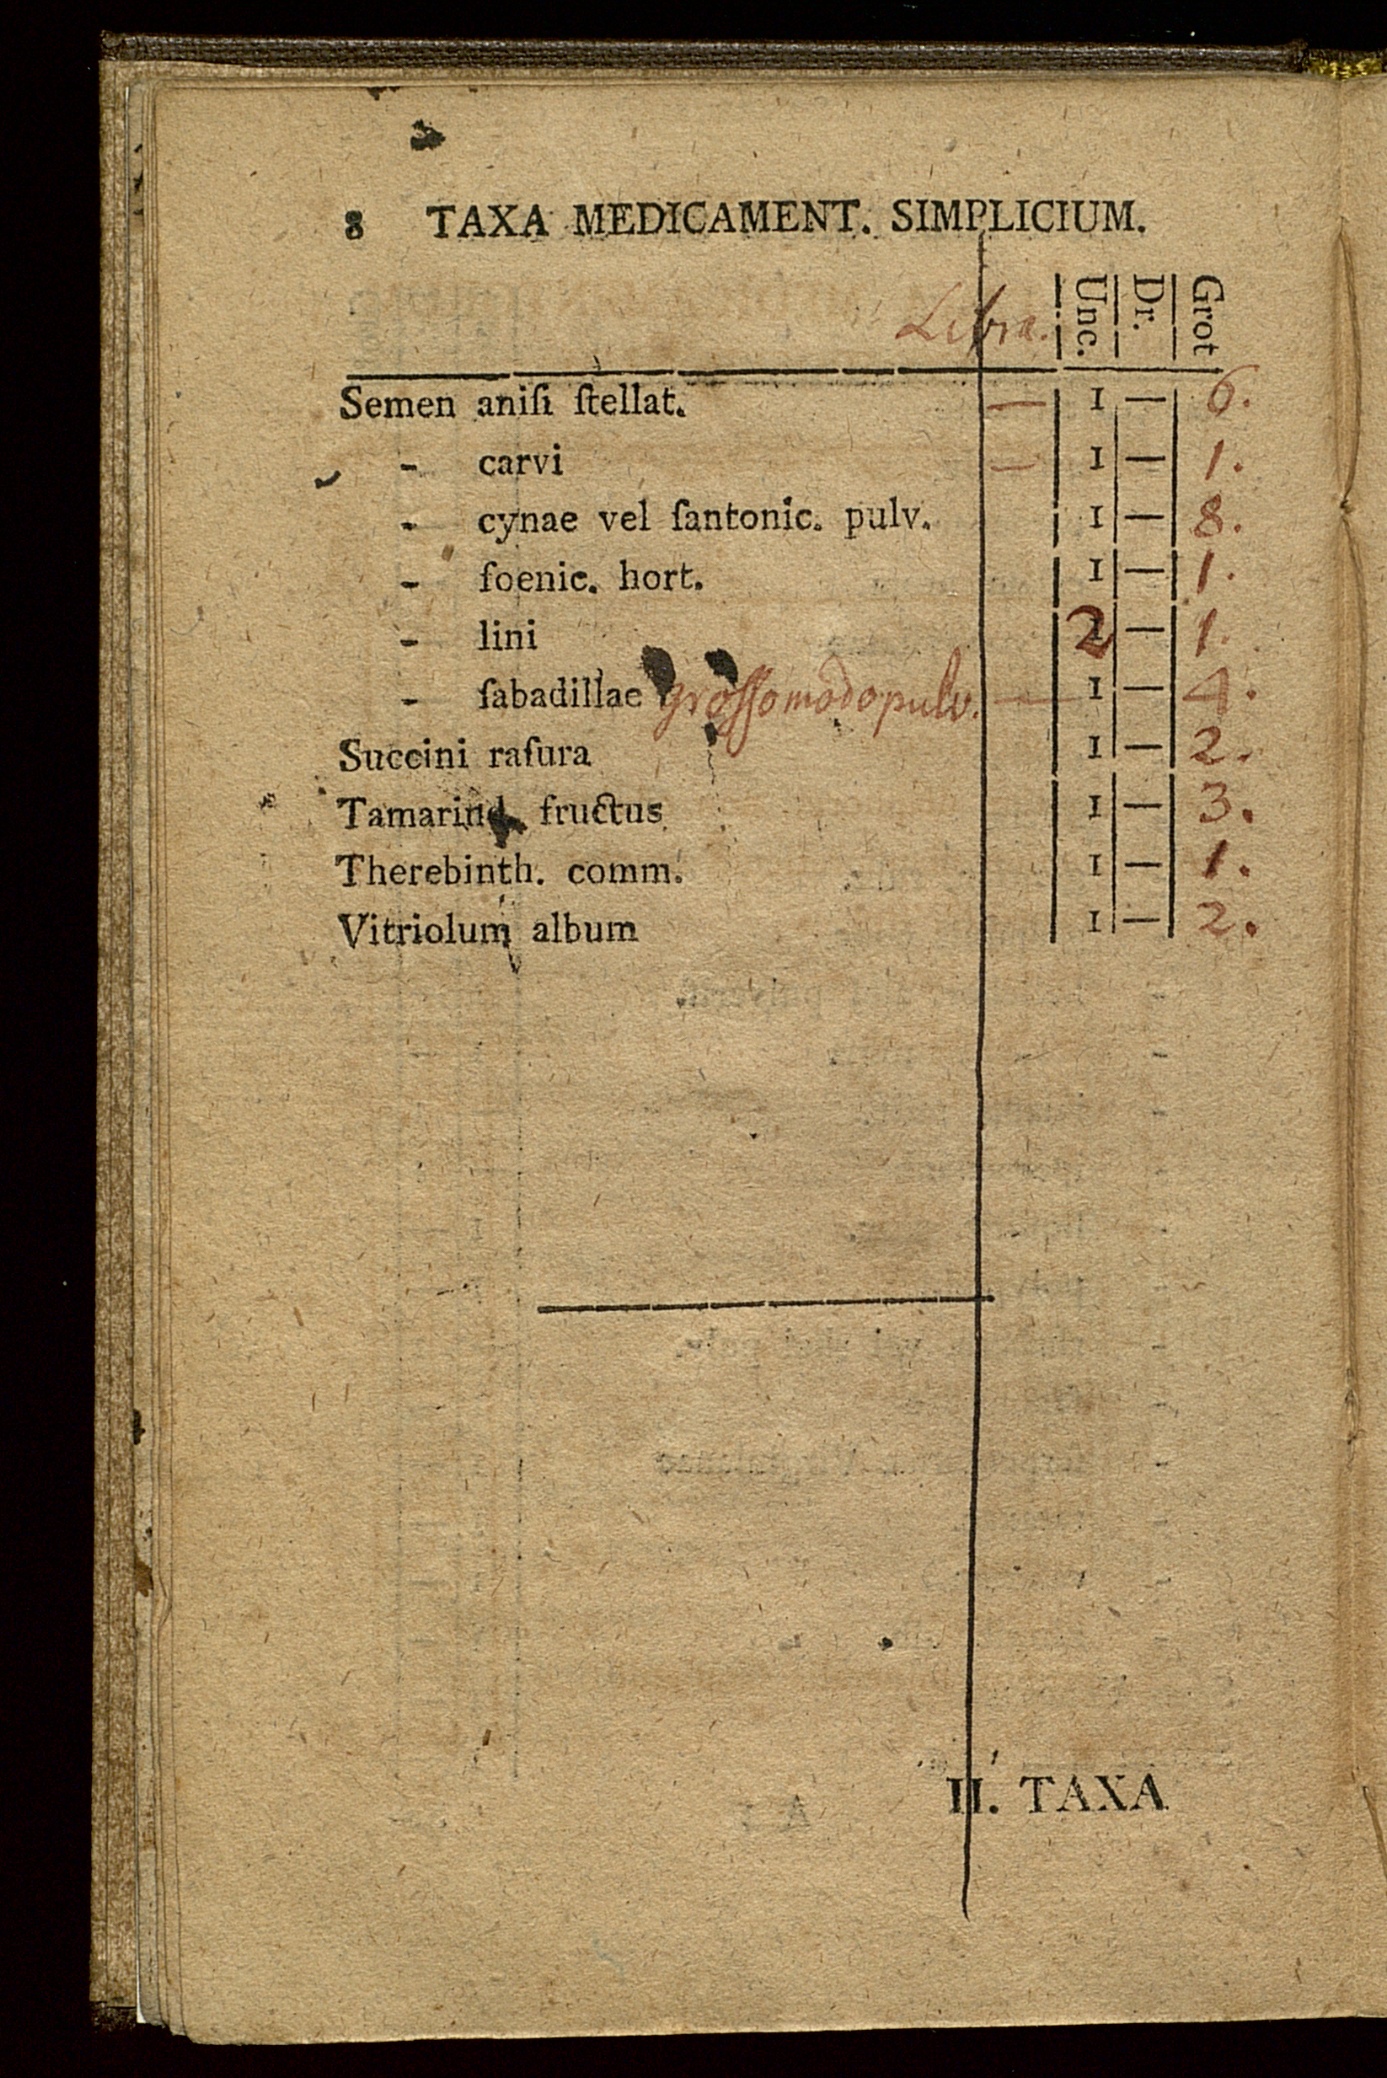 8 TAXA MEDICAMENT. SIMPLICIUM.
Libra. Unc. Dr. Grot
Semen aniſi ſtellat. — I — 6.
- carvi — I — 1.
- cynae vel ſantonic. pulv. I — 8.
- foenic. hort. I — 1.
- lini 2 — 1.
- ſabadillae groſſo modo pulv. — I — 4.
Succini raſura I — 2.
Tamarind. fructus I — 3.
Therebinth. comm. I — 1.
Vitriolum album I — 2.
II. TAXA